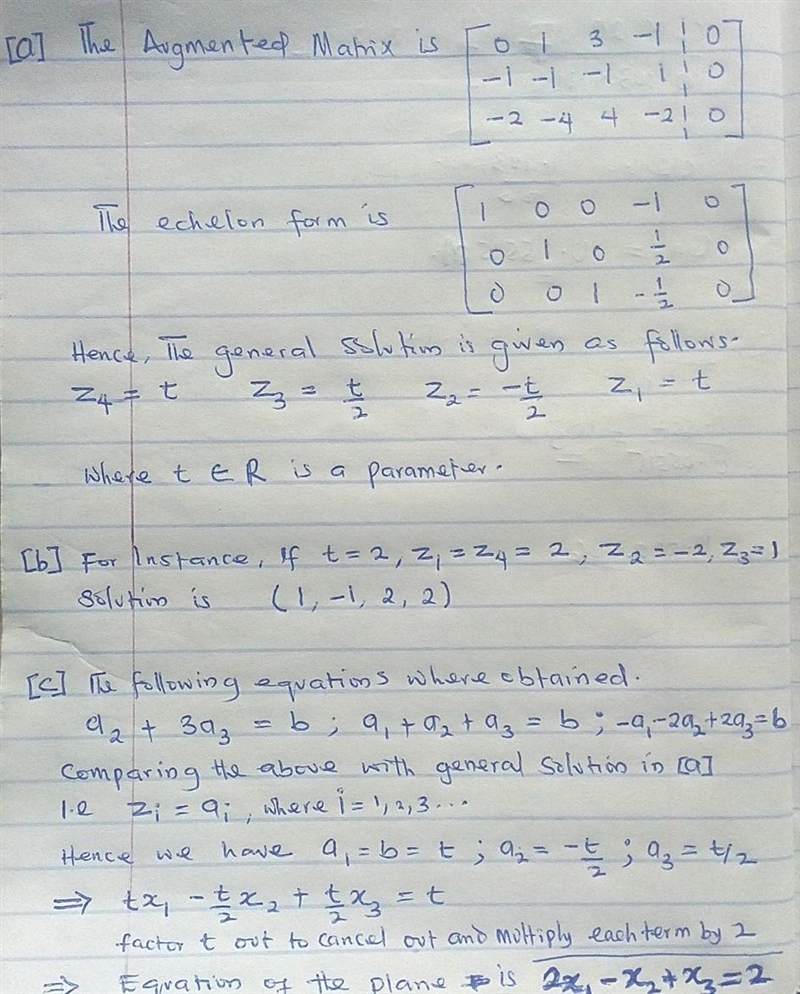 [a] The Augmented Matrix is [ 0 1 3 -1 ¦ 0
-1 -1 -1 1 ¦ 0
-2 -4 4 -2 ¦ 0 ]
The echelon form is [ 1 0 0 -1 0
0 1 0 1/2 0
0 0 1 -1/2 0 ]
Hence, The general Solution is given as follows.
Z₄ = t Z₃ = t/2 Z₂ = -t/2 Z₁ = t
Where t ∈ R is a parameter.
[b] For Instance, If t = 2, Z₁ = Z₄ = 2, Z₂ = -2, Z₃ = 1
Solution is (1, -1, 2, 2)
[c] The following equations where obtained.
a₂ + 3a₃ = b ; a₁ + a₂ + a₃ = b ; -a₁ - 2a₂ + 2a₃ = b
Comparing the above with general Solution in [a]
I.e Zi = ai, where i = 1, 2, 3 ...
Hence we have a₁ = b = t ; a₂ = -t/2 ; a₃ = t/2
⇒ tx₁ - t/2 x₂ + t/2 x₃ = t
factor t out to cancel out and multiply each term by 2
⇒ Equation of the plane is 2x₁ - x₂ + x₃ = 2